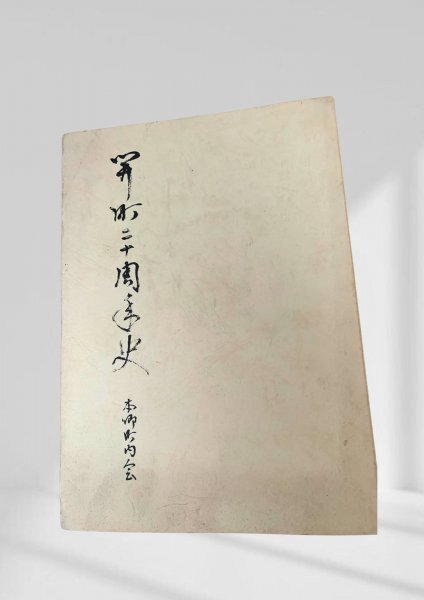 開町二十周年史
本郷町内会